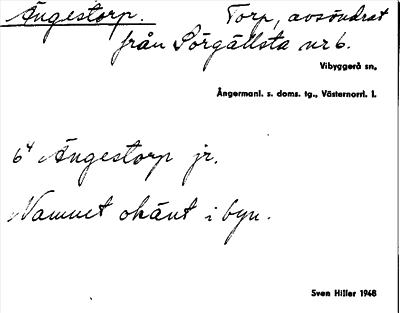 Ängestorp. Torp, avsöndrat
från Sörgällsta nr 6.
Vibyggerå sn,
Ångermanl. s. doms. tg., Västernorrl. l.
6⁴ Ängestorp jr.
Namnet okänt i byn.
Sven Hiller 1948